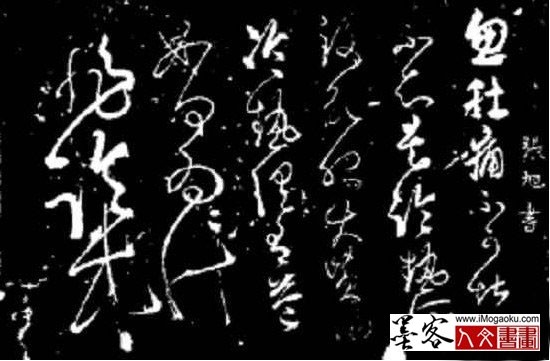 張旭書
忽肚痛不可堪
不知是冷熱所
致欲服大黃湯
冷熱俱有益
如何為計
非臨床
墨客
www.iMogaoku.com
人文書畫